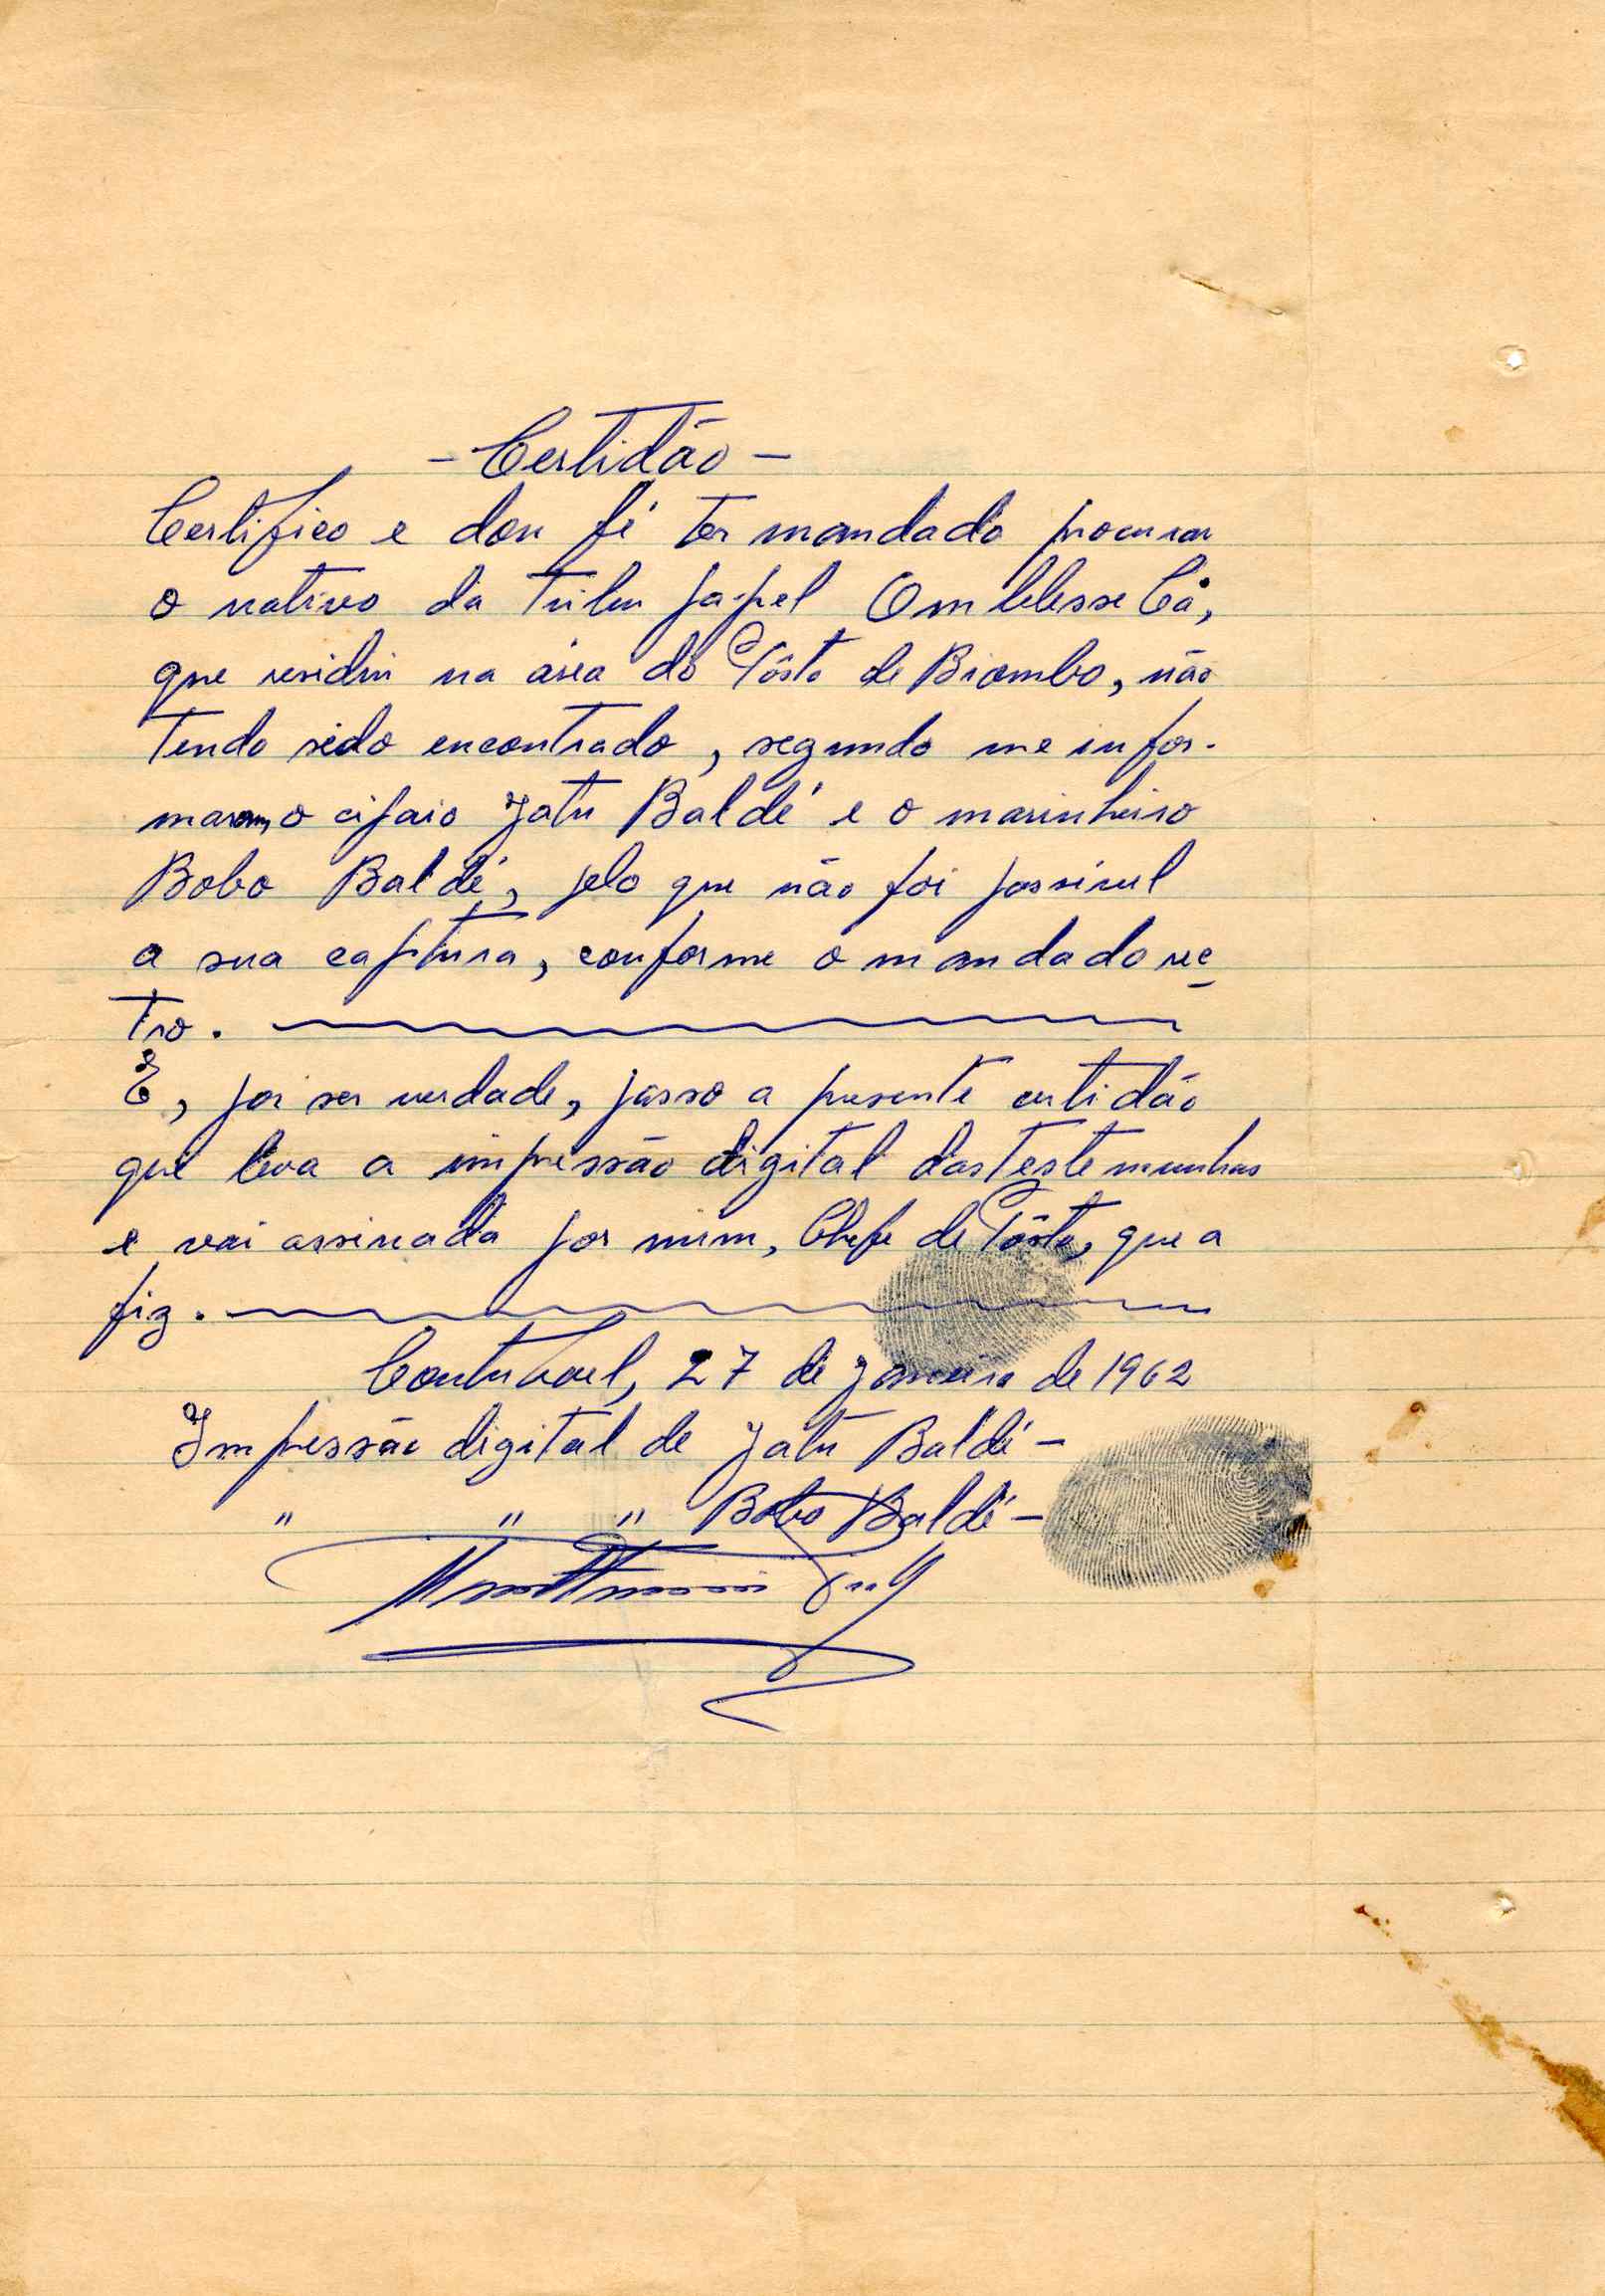 - Certidão -
Certifico e dou fé ter mandado procurar
o nativo da tribu papel Omblesse Cá,
que residiu na área do Pôsto de Biombo, não
tendo sido encontrado, segundo me infor-
maram, o cipaio Jatu Baldé e o marinheiro
Bobo Baldé, pelo que não foi possível
a sua captura, conforme o mandado re
tro.
E, por ser verdade, passo a presente certidão
que leva a impressão digital das testemunhas
e vai assinada por mim, Chefe de Pôsto, que a
fiz.
27 de janeiro de 1962
Impressão digital de Jatu Baldé -
" " " Bobo Baldé -